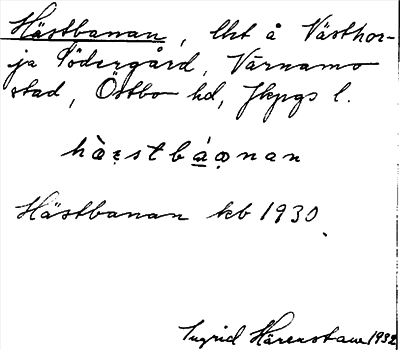 Hästbanan, lht å Västhor-
ja Södergård, Värnamo
stad, Östbo hd, Jkpgs l.
hàꞓstbáo̤nan
Hästbanan kb 1930.
Ingrid Härenstam 1932